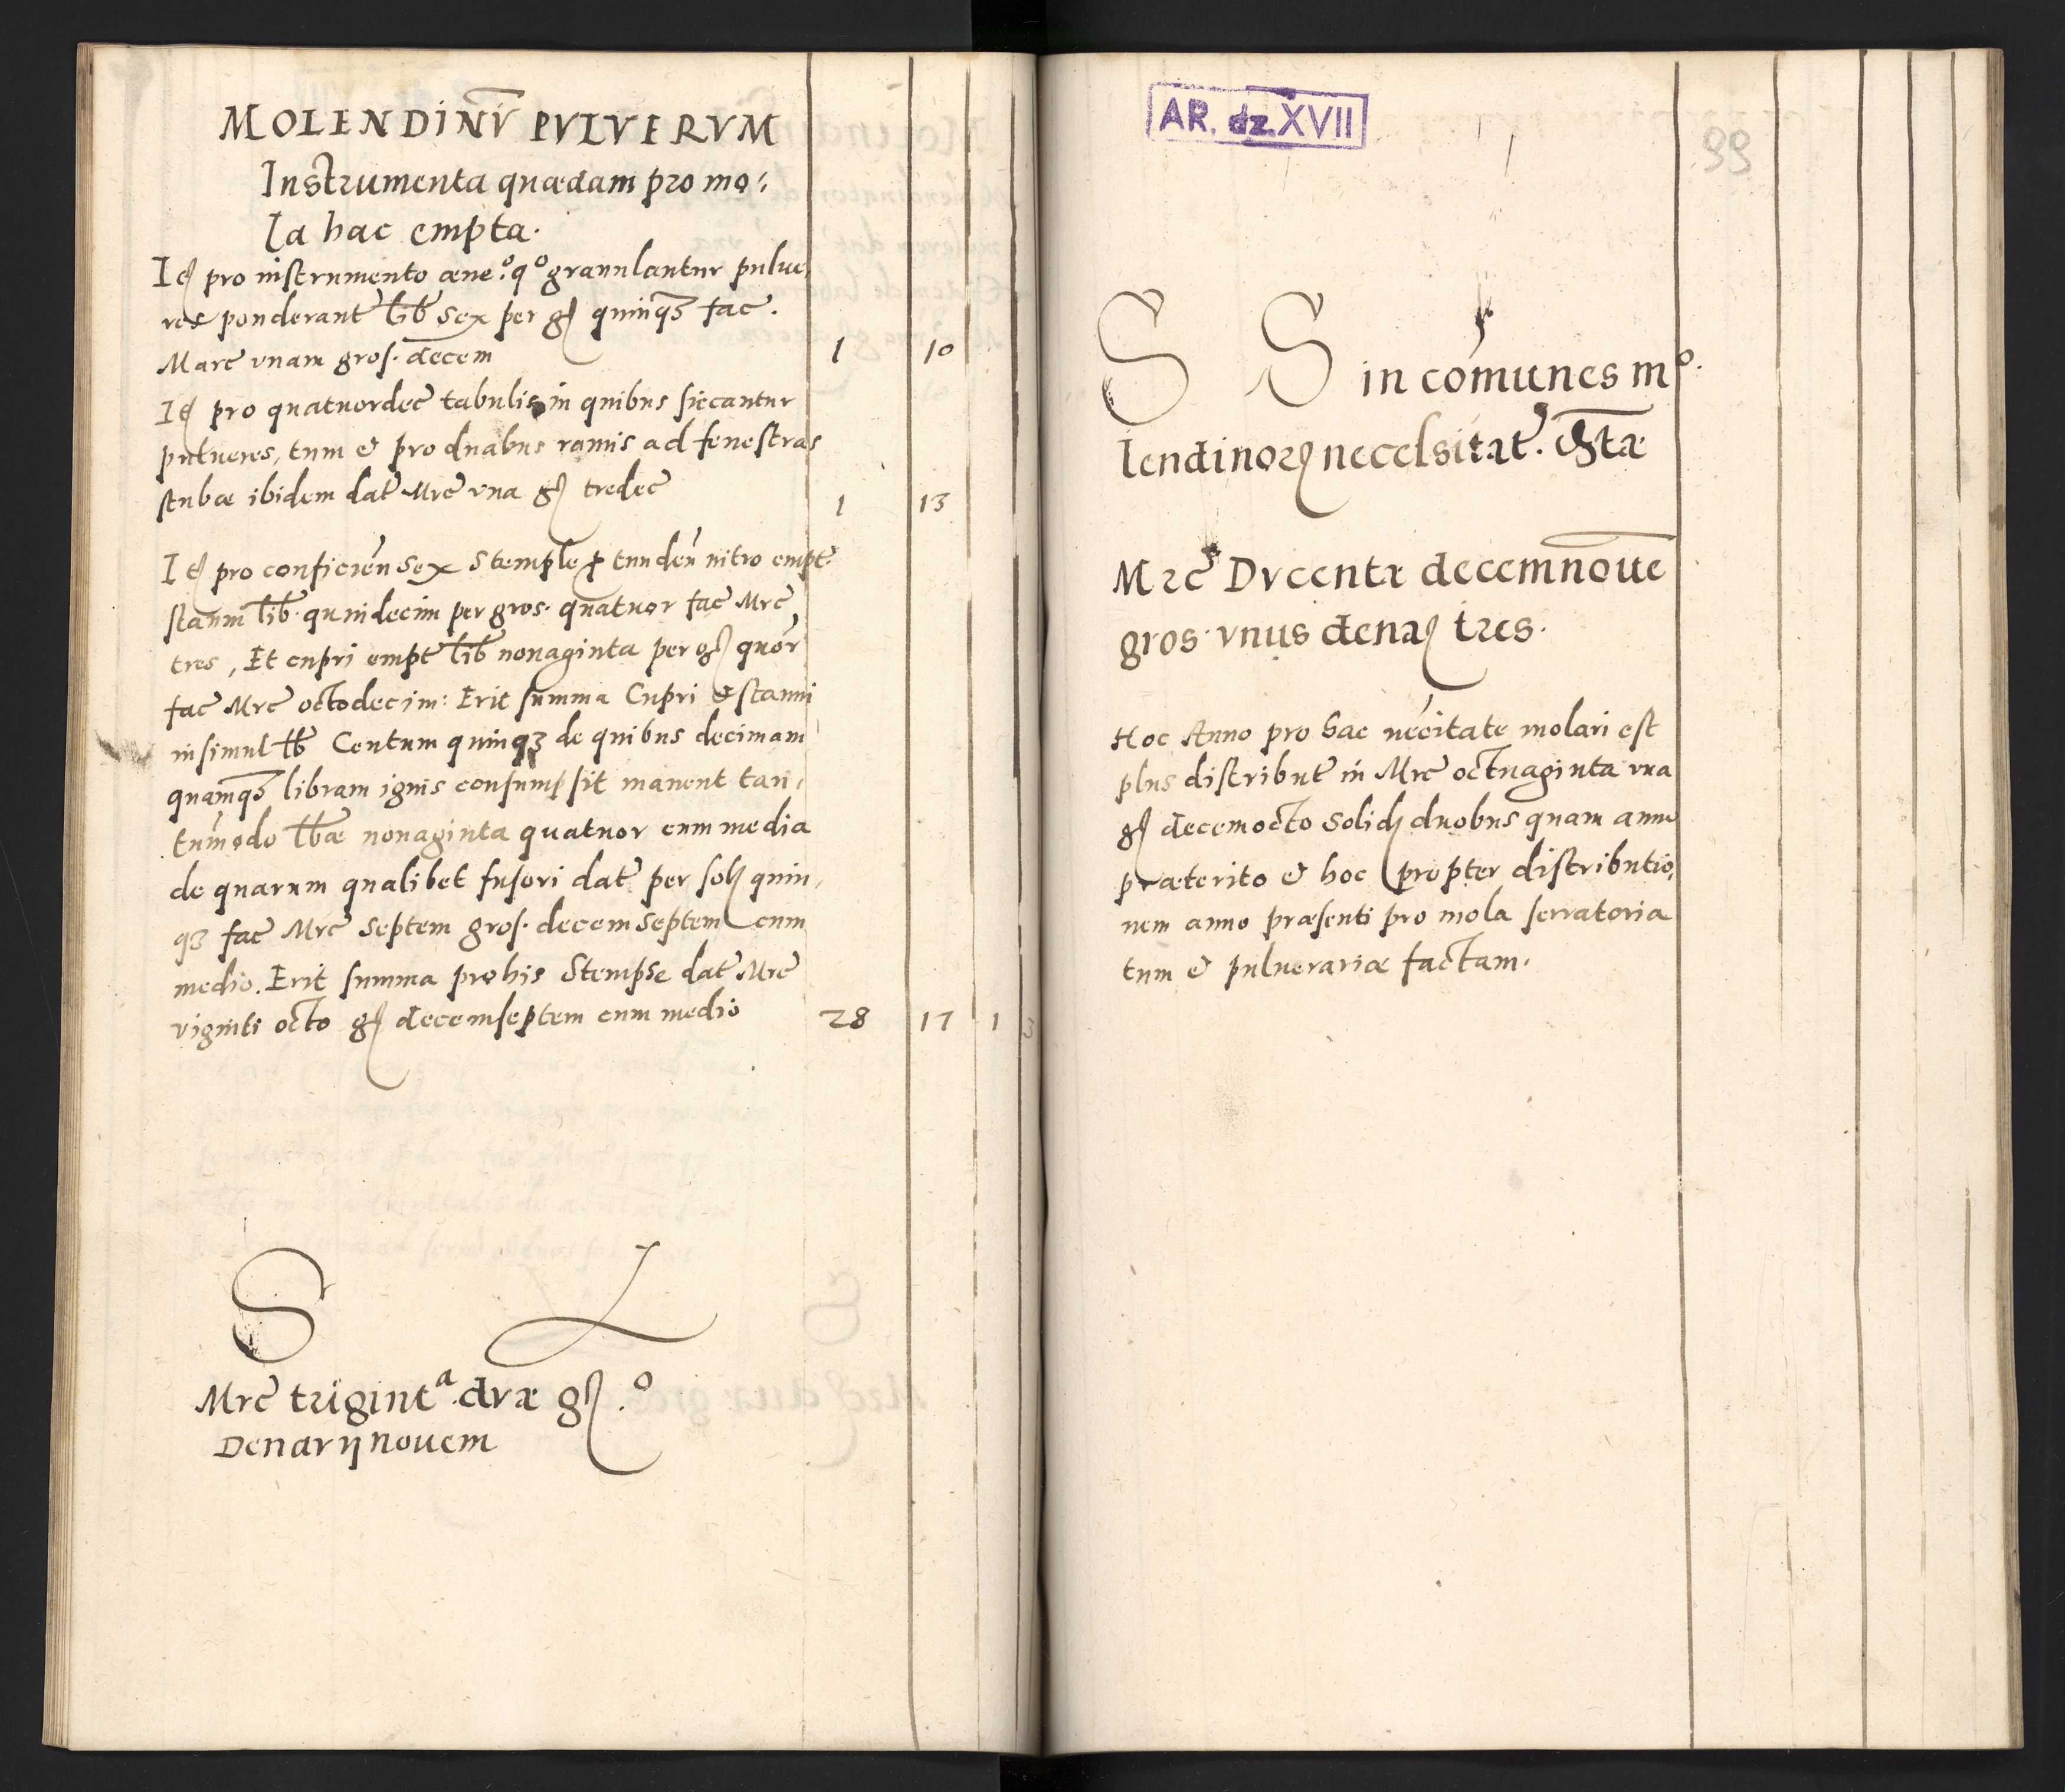 MOLENDINV̄ PVLVERVM
Instrumenta quædam pro mo:
la hac empta.
Itē pro instrumento æneº. qº granulantur pulue,
res ponderant lib sex per gſ quinqȝ fac̃.
Marc̃ vnam gros. decem 1 10
Itē pro quatuordec̃ tabulis in quibus siccantur
pulueres, tum & pro duabus ramis ad fenestras
stubæ ibidem dat̃ Mrc̃ vna gſ tredec̃ 1 13
Itē pro conficieñ sex Stemple ꝓ tundeñ nitro empt̃
stanni lib. quindecim per gros. quatuor fac̃ Mrc̃
tres, Et cupri empt̃ lib nonaginta per gſ quor̃
fac̃ Mrc̃ octodecim: Erit summa Cupri & stanni
insimul lb Centum quinqȝ de quibus decimam
quamqȝ libram ignis consumpsit manent tan,
tum̃odo lbæ nonaginta quatuor cum media
de quarum qualibet fusori dat̃ per solſ quin,
qȝ fac̃ Mrc̃ Septem gros. decem septem cum
medio. Erit summa pro his Stempfe dat̃ Mrc̃
viginti octo gſ decemseptem cum medio 28 17 1 3
S L
Mrc̃ trigintª. dvæ gſ. º
Denarij nouem
AR. dz. XVII
99
S S in com̃unes mº.
lendinorꝝ necessitat̃.
Mrc̃ Dvcentæ decemnoue
gros. vnus denaſ tres.
Hoc Anno pro hac nec̃citate molari est
plus distribut̃ in Mrc̃ octuaginta vna
gſ decemocto solidſ duobus quam anno
præterito & hoc propter distributio,
nem anno præsenti pro mola serratoria
tum & pulverariæ factam.